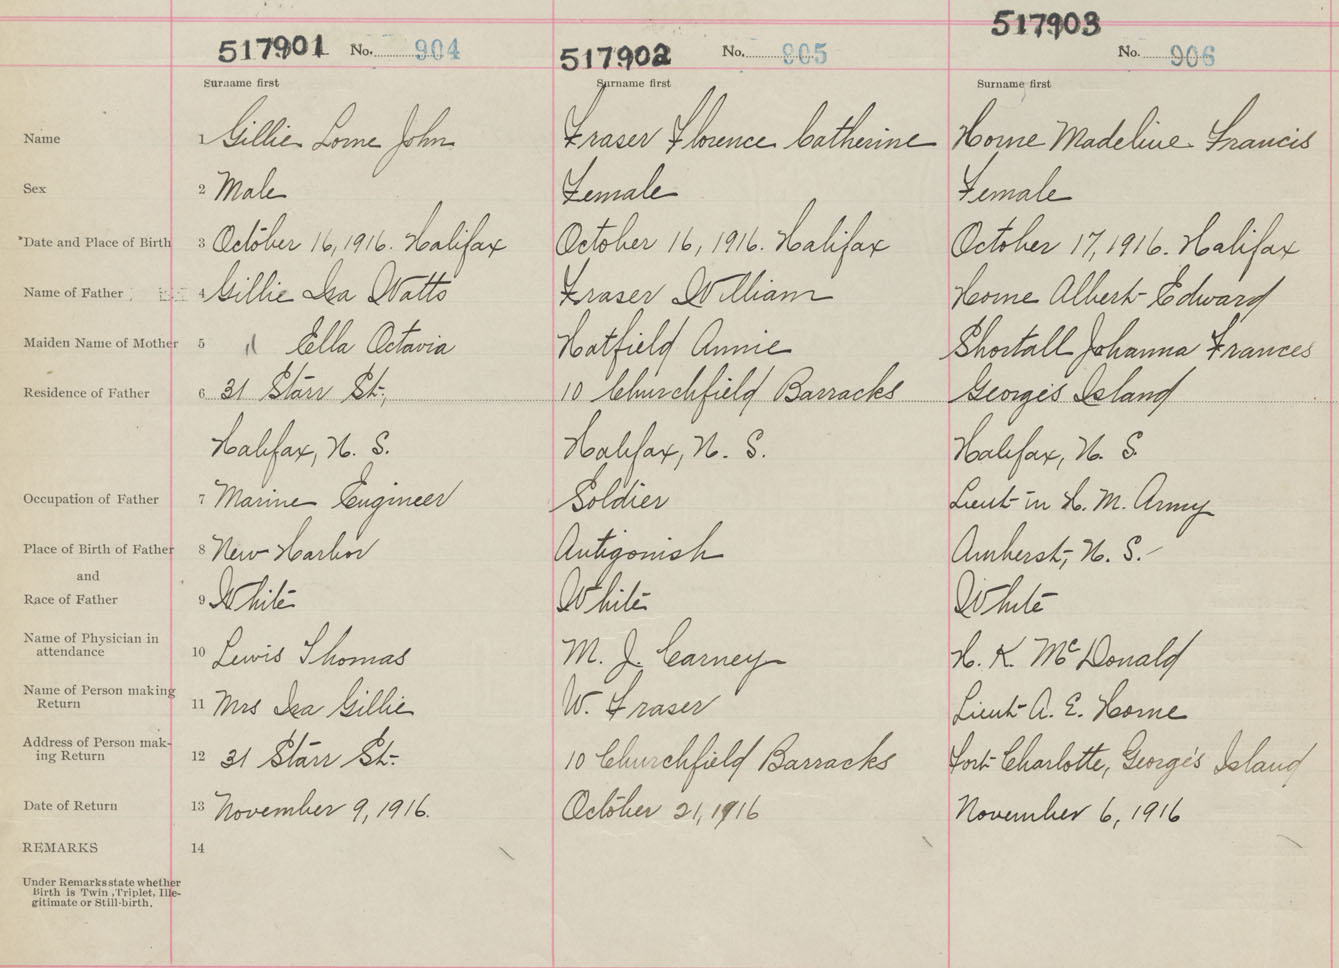 517901 No. 904 517902 No. 905 517903 No. 906
Surname first Surname first Surname first
Name 1 Gillie Lorne John Fraser Florence Catherine Horne Madeline Francis
Sex 2 Male Female Female
*Date and Place of Birth 3 October 16, 1916. Halifax October 16, 1916. Halifax October 17, 1916. Halifax
Name of Father 4 Gillie Ira Watts Fraser William Horne Albert Edward
Maiden Name of Mother 5 " Ella Octavia Hatfield Annie Shortall Johanna Frances
Residence of Father 6 31 Starr St., 10 Churchfield Barracks George's Island
Halifax, N. S. Halifax, N. S. Halifax, N. S.
Occupation of Father 7 Marine Engineer Soldier Lieut in H. M. Army
Place of Birth of Father 8 New Harbor Antigonish Amherst, N. S.
and
Race of Father 9 White White White
Name of Physician in
attendance 10 Lewis Thomas M. J. Carney H. K. McDonald
Name of Person making
Return 11 Mrs Ira Gillie W. Fraser Lieut A. E. Horne
Address of Person mak-
ing Return 12 31 Starr St. 10 Churchfield Barracks Fort Charlotte, George's Island
Date of Return 13 November 9, 1916. October 21, 1916 November 6, 1916
REMARKS 14
Under Remarks state whether
Birth is Twin, Triplet, Ille-
gitimate or Still-birth.